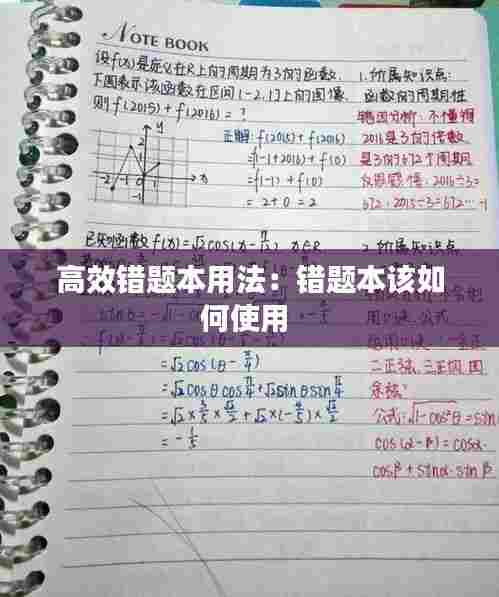 NOTE BOOK
设f(x)是定义在R上的周期为3的函数.
下图表示该函数在区间[-2,1]上的图像.
则f(2015)+f(2016)=?
正解: f(2015)+f(2016)
=f(-1+2016)+f(0)
=f(-1)+f(0)
=2+0=2
y
x
-2
-1
1.所属知识点:
函数的周期性
错因分析:不懂得
2016是3的倍数
是3的672个周期
2016÷3=
672. 2015÷3=672…
已知函数f(x)=√2cos(x-π/12) x∈R
2.所属知识点
高效错题本用法：错题本该如
何使用
=√2cos(θ-π/4)
=√2cosθcosπ/4+√2sinθsinπ/4
=√2×3/5×√2/2+√2×(-4/5)×√2/2
=-1/5
二正弦,三正切,四
余弦
公式:√1-cos²θ=sin
cos(α-β)=cosα·
cosβ+sinα·sinβ